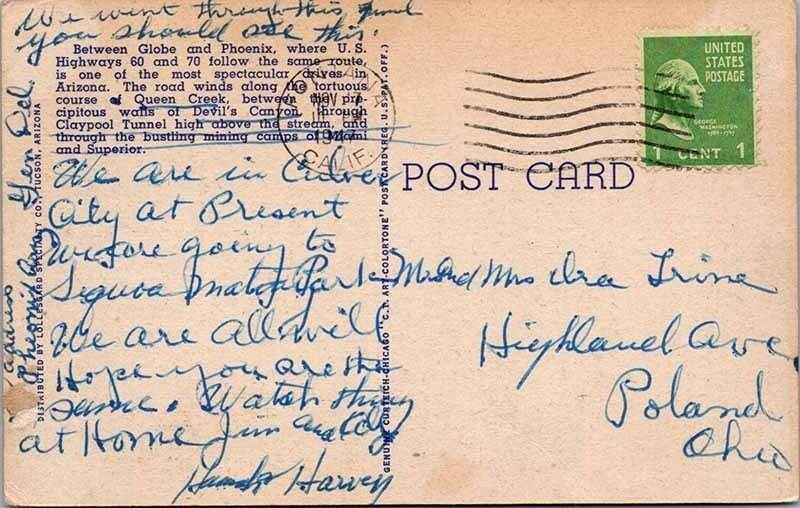 We went through this Tunnel
you should see this.
Between Globe and Phoenix, where U.S.
Highways 60 and 70 follow the same route,
is one of the most spectacular drives in
Arizona. The road winds along the tortuous
course of Queen Creek, between the pre-
cipitous walls of Devil's Canyon, through
Claypool Tunnel high above the stream, and
through the bustling mining camps of Miami
and Superior.
We are in Culver
City at Present
we are going to
Park
We are All well
Hope you are the
same. Watch thing
at Home Jim and
Harvey
address
Gen Del.
DISTRIBUTED BY LOLLESGARD SPECIALTY CO., TUCSON, ARIZONA
GENUINE CURTEICH-CHICAGO "C.T. ART-COLORTONE" POST CARD (REG. U.S. PAT. OFF.)
NOV 7
CALIF.
UNITED
STATES
POSTAGE
GEORGE
WASHINGTON
1 CENT 1
POST CARD
Mr and Mrs Ira
Highland Ave
Poland
Ohio